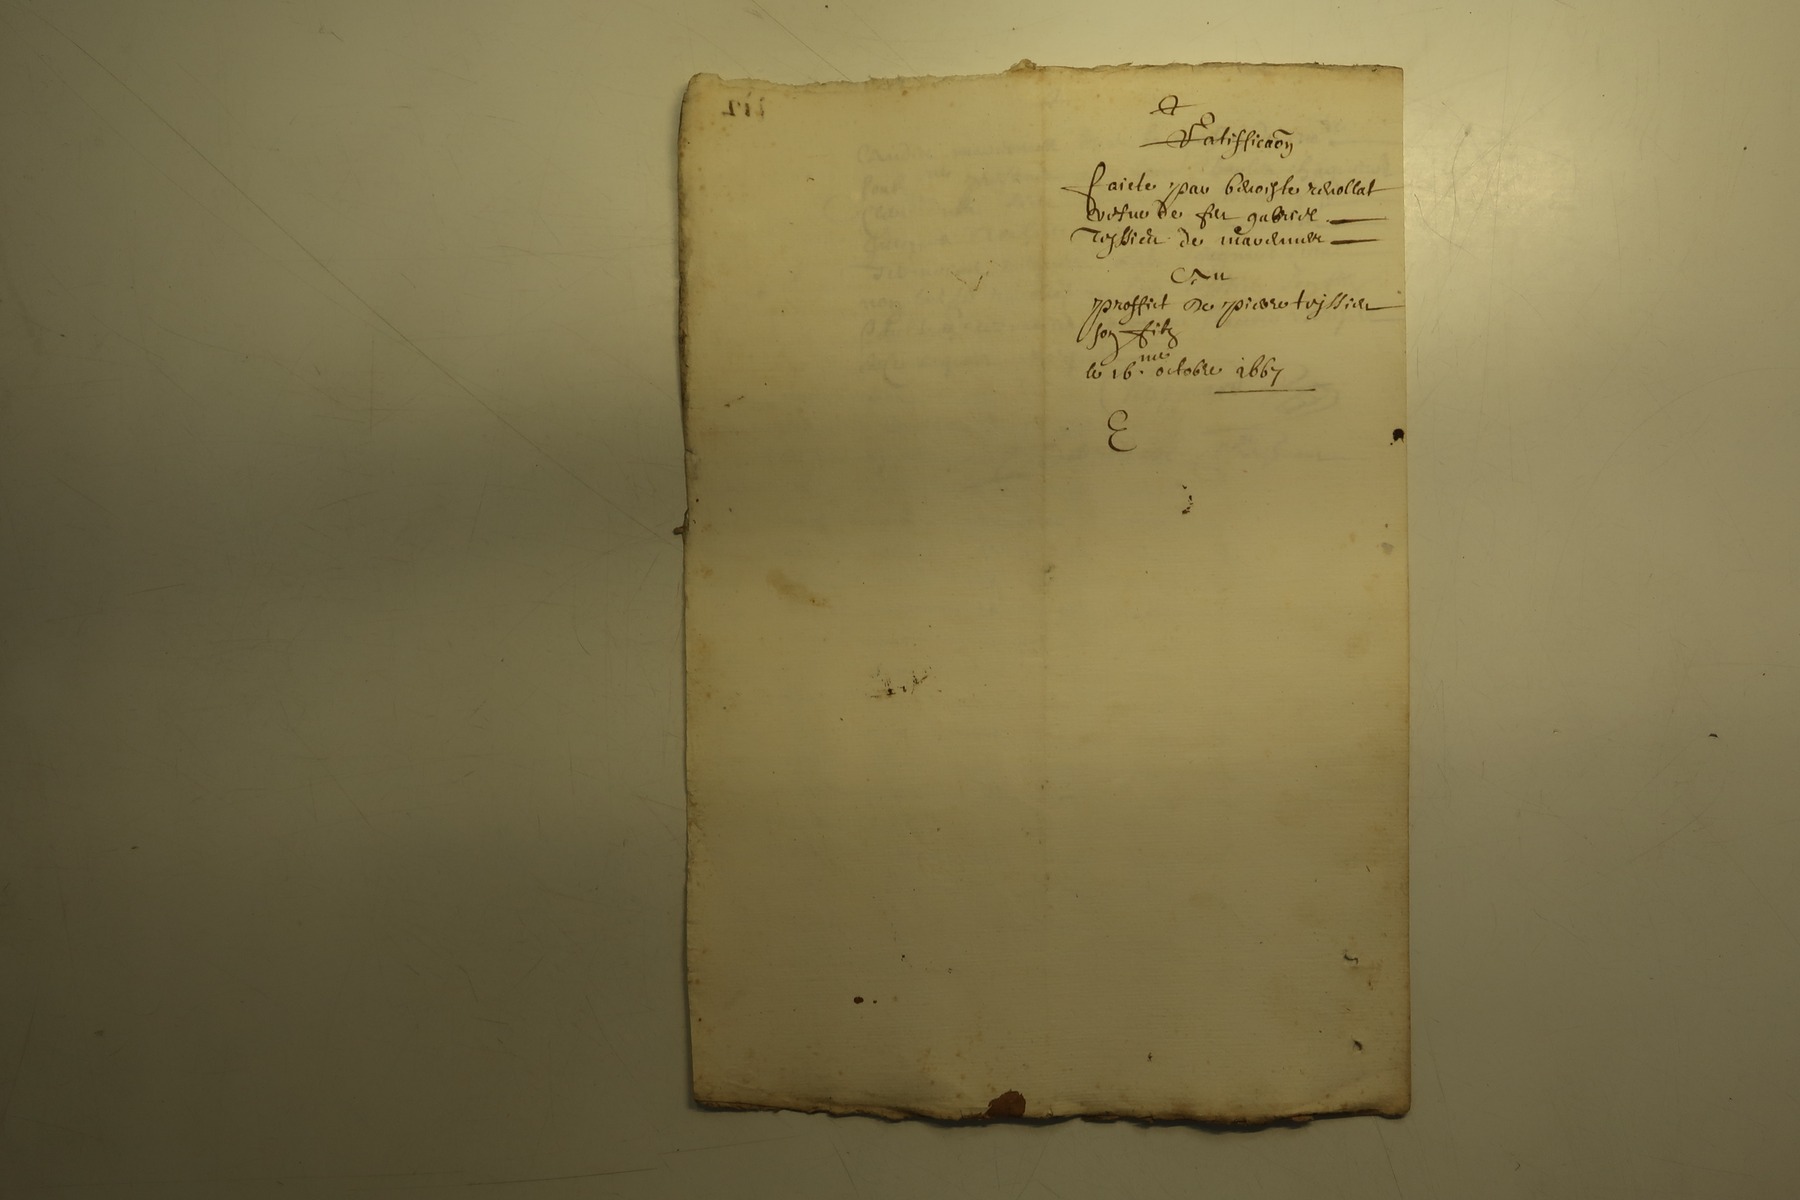 Ratifficaõn
faicte par benoiste revollat
vefue de feu gabriel
Teyssier de mavernier
Au
proffict de pierre teyssier
son filz
le 16.me octobre 1667